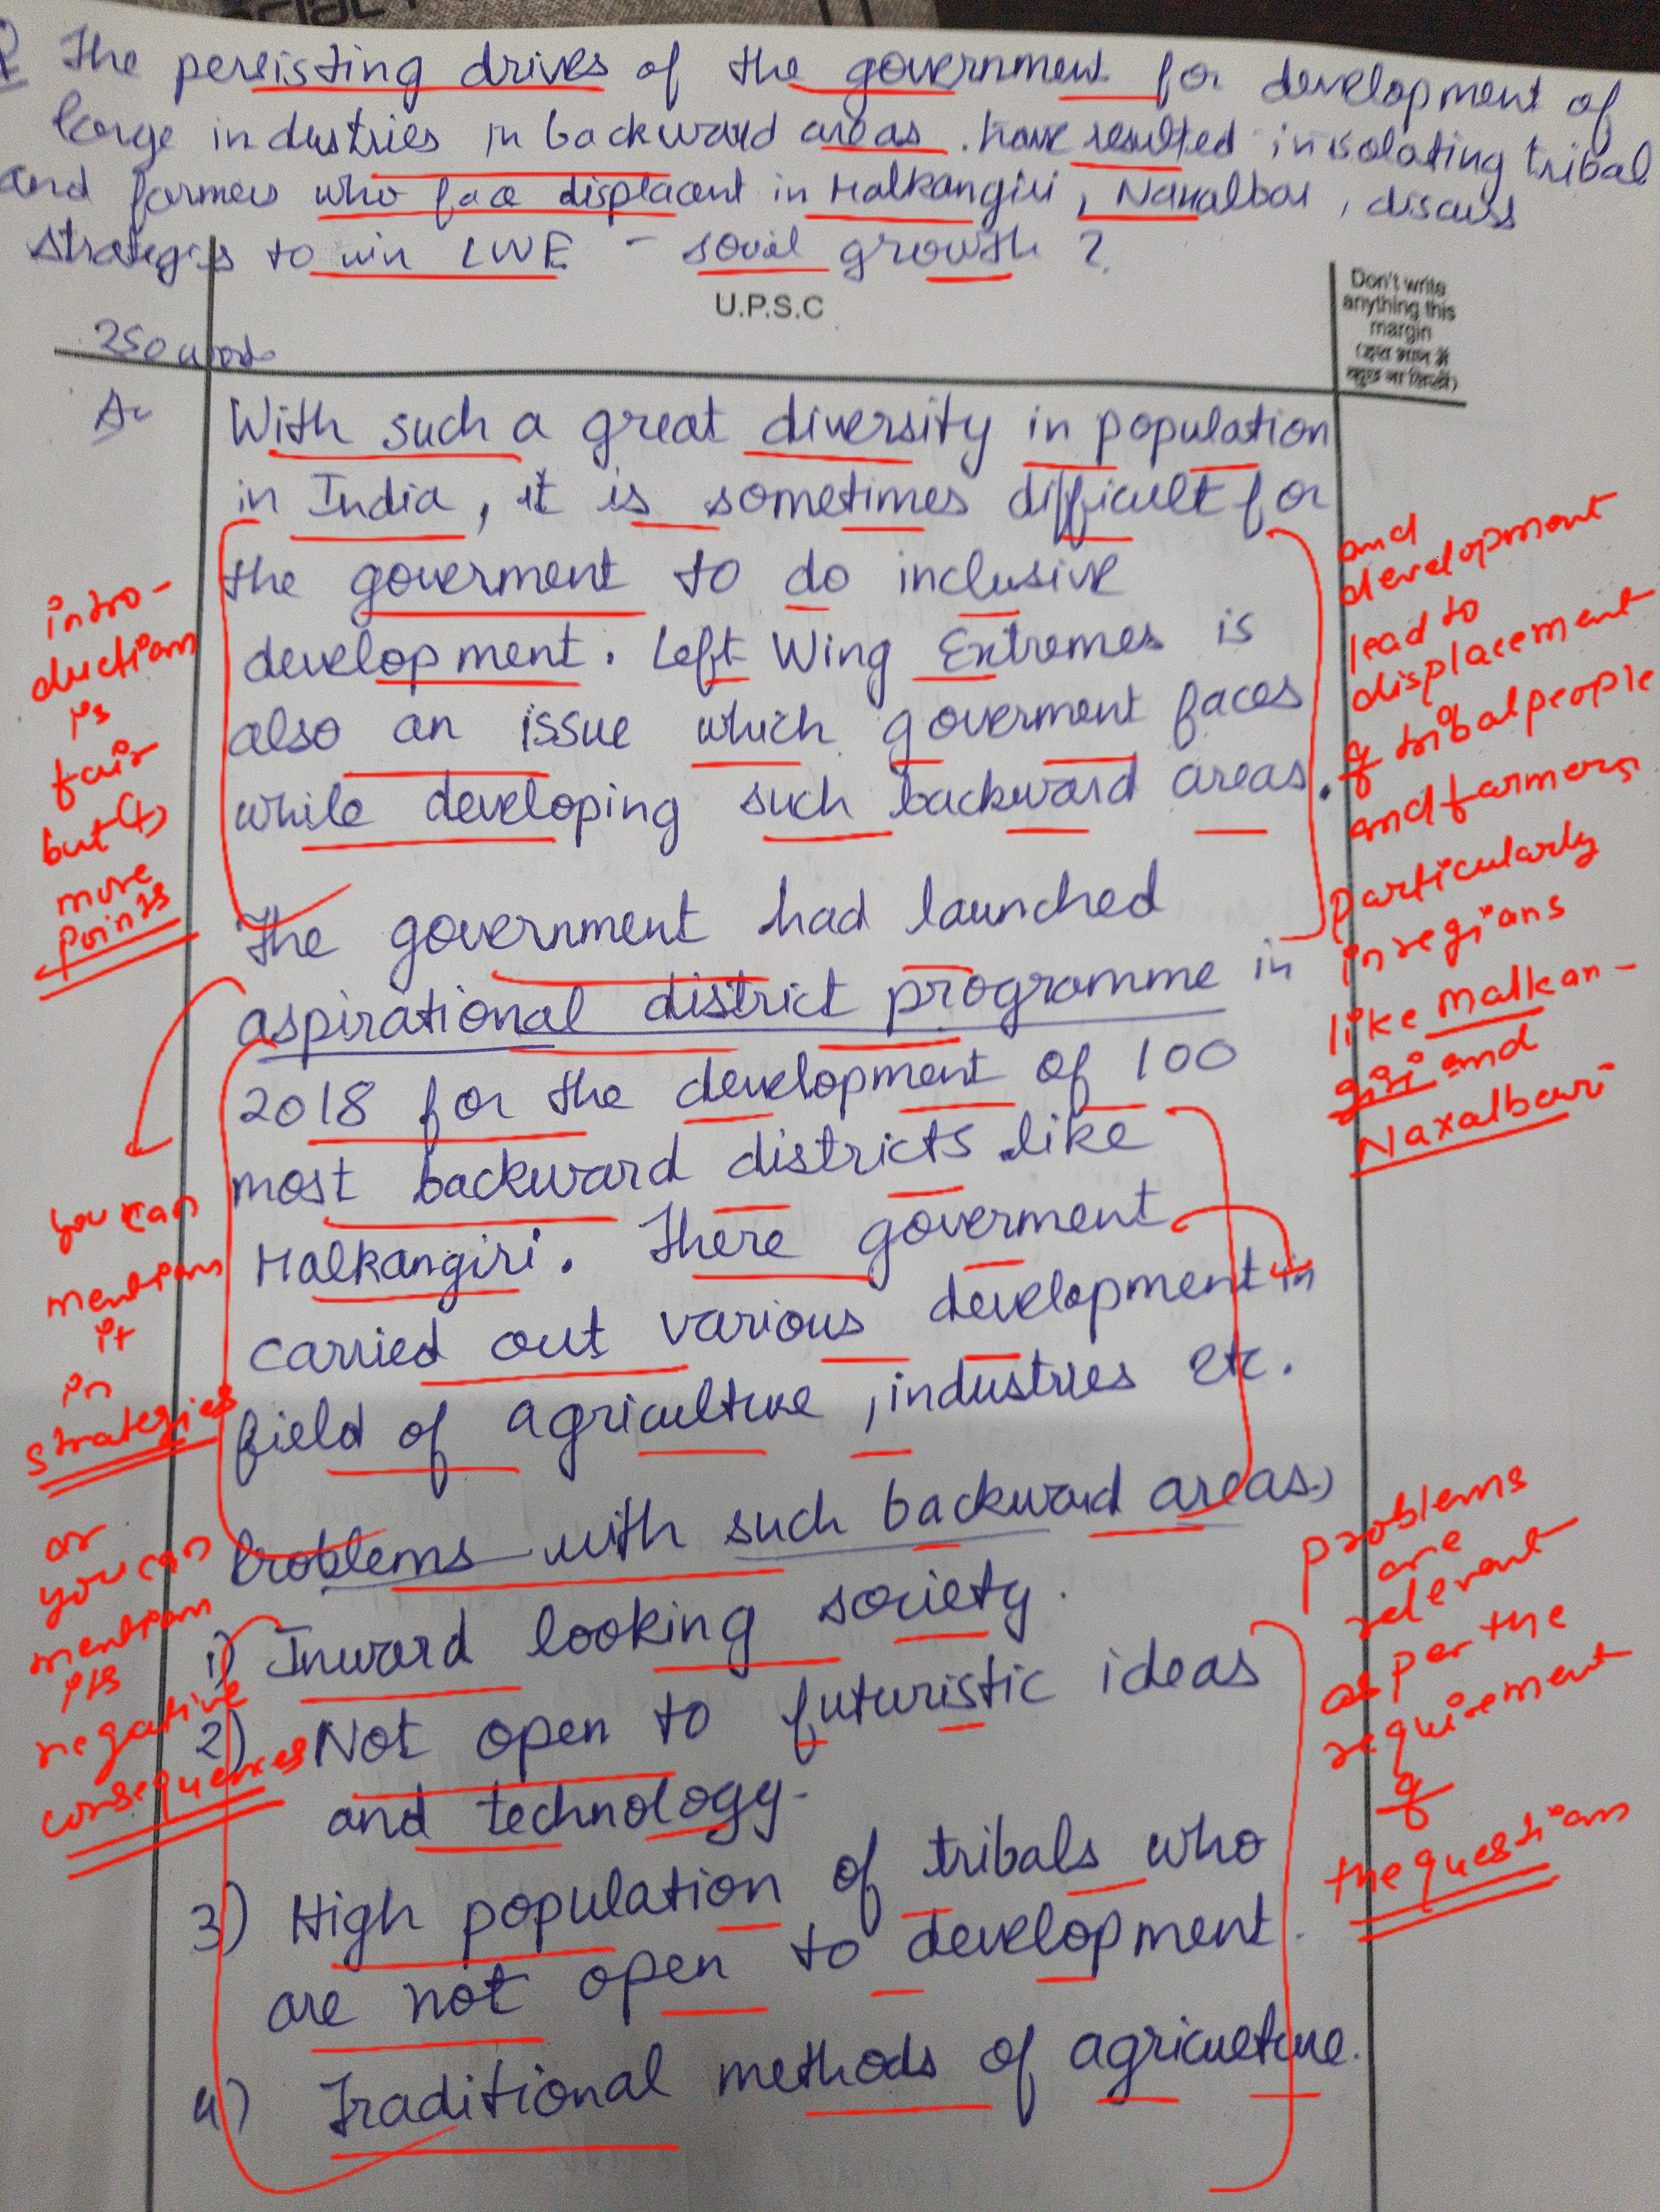 Q The persisting drives of the government for development of
large industries in backward areas. have resulted in isolating tribal
and farmers who face displacent in Malkangiri, Naxalbai, discuss
strategies to win LWE - social growth ?
U.P.S.C
Don't write
anything this
margin
(इस भाग में
कुछ ना लिखें)
250 words
A- With such a great diversity in population
in India, it is sometimes difficult for
the goverment to do inclusive
development. Left Wing Extremes is
also an issue which goverment faces
while developing such backward areas.
intro-
duction
is
fair
but (+)
more
points
and
development
lead to
displacement
of tribal people
and farmers
particularly
in regions
like Malkan-
giri and
Naxalbari
The government had launched
aspirational district programme in
2018 for the development of 100
most backward districts like
Malkangiri. There goverment
carried out various development in
field of agriculture, industries etc.
you can
mention
it
in
strategies
or
you can
mention
its
negative
consequences
Problems with such backward areas.
1) Inward looking society.
2) Not open to futuristic ideas
and technology.
3) High population of tribals who
are not open to development.
4) Traditional methods of agriculture.
problems
are
relevant
as per the
requirement
of
the question